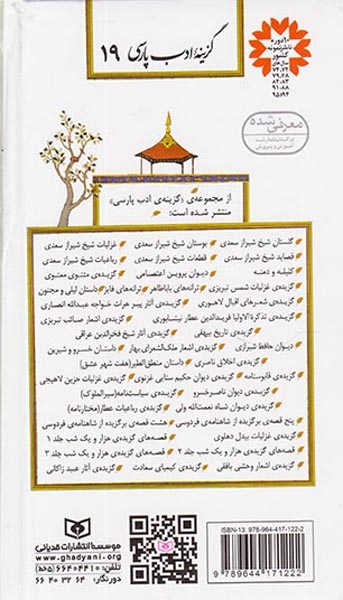 ۱۰ دوره
ناشر نمونه
کشور
گزینهٔ ادب پارسی ۱۹
معرفی شده
در کتابنامه رشد
آموزش و پرورش
از مجموعه‌ی «گزینه‌ی ادب پارسی»
منتشر شده است:
گلستان شیخ شیراز سعدی بوستان شیخ شیراز سعدی غزلیات شیخ شیراز سعدی
قصاید شیخ شیراز سعدی قطعات شیخ شیراز سعدی رباعیات شیخ شیراز سعدی
کلیله و دمنه دیوان پروین اعتصامی گزیده‌ی مثنوی معنوی
گزیده‌ی غزلیات شمس تبریزی ترانه‌های باباطاهر ترانه‌های فایز داستان لیلی و مجنون
گزیده‌ی شعرهای اقبال لاهوری گزیده‌ی آثار پیر هرات خواجه عبدالله انصاری
گزیده‌ی تذکرة‌الاولیا فریدالدین عطار نیشابوری گزیده‌ی اشعار صائب تبریزی
گزیده‌ی تاریخ بیهقی گزیده‌ی آثار شیخ فخرالدین عراقی
دیوان حافظ شیرازی گزیده‌ی اشعار ملک‌الشعرای بهار داستان خسرو و شیرین
گزیده‌ی اخلاق ناصری داستان منطق‌الطیر (هفت شهر عشق)
گزیده‌ی قابوسنامه گزیده‌ی دیوان حکیم سنایی غزنوی گزیده‌ی غزلیات حزین لاهیجی
گزیده‌ی دیوان ناصرخسرو گزیده‌ی سیاست‌نامه (سیرالملوک)
گزیده‌ی دیوان شاه نعمت‌الله ولی گزیده‌ی رباعیات عطار (مختارنامه)
پنج قصه‌ی برگزیده از شاهنامه‌ی فردوسی هشت قصه‌ی برگزیده از شاهنامه‌ی فردوسی
گزیده‌ی غزلیات بیدل دهلوی قصه‌های گزیده‌ی هزار و یک شب جلد ۱
قصه‌های گزیده‌ی هزار و یک شب جلد ۲ قصه‌های گزیده‌ی هزار و یک شب جلد ۳
گزیده‌ی اشعار وحشی بافقی گزیده‌ی کیمیای سعادت گزیده‌ی آثار عبید زاکانی
موسسه انتشارات قدیانی
www.ghadyani.org
تلفن: ۶۶۴۰۴۴۱۰ (۵خط)
دورنگار: ۶۶ ۴۰ ۳۲ ۶۴
ISBN-13: 978-964-417-122-2
9 789644 171222